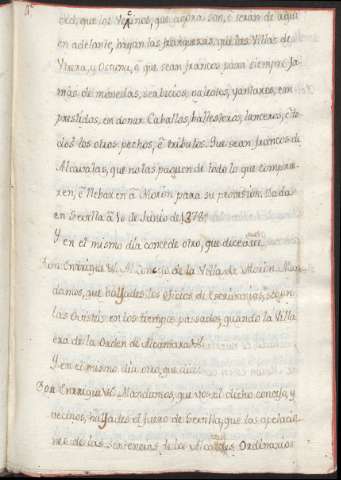 era, que los Vezinos, que agora son, è seran de aqui
en adelante, hayan las franquezas, que las Villas de
Utrera, y Ossuna, è que sean francos para siempre ja-
mas de monedas, serbicios, yantares, em-
prestidos, en donar Caballos, ballesteros, lanceros, è to-
dos los otros pechos, è tributos. Que sean francos de
Alcavalas, que no las paguen de todo lo que compra-
ren, è llebaren à Morón para su provision. Dada
en Sevilla à de Junio de 1378.
Y en el mismo dia concede otro, que dice assi
Don Enrrique &c. Al Concejo de la Villa de Morón Man-
damos, que hallades los oficios de Escribanias, segun
las en los tiempos passados, quando la Villa
era de la Orden de Alcantara &c.
Y en el mismo dia otro, que dice
Don Enrrique &c. Mandamos, que vos el dicho concejo, y
vecinos, hallades el fuero de Sevilla, que las apelacio-
nes de las sentencias de los Alcaldes Ordinarios